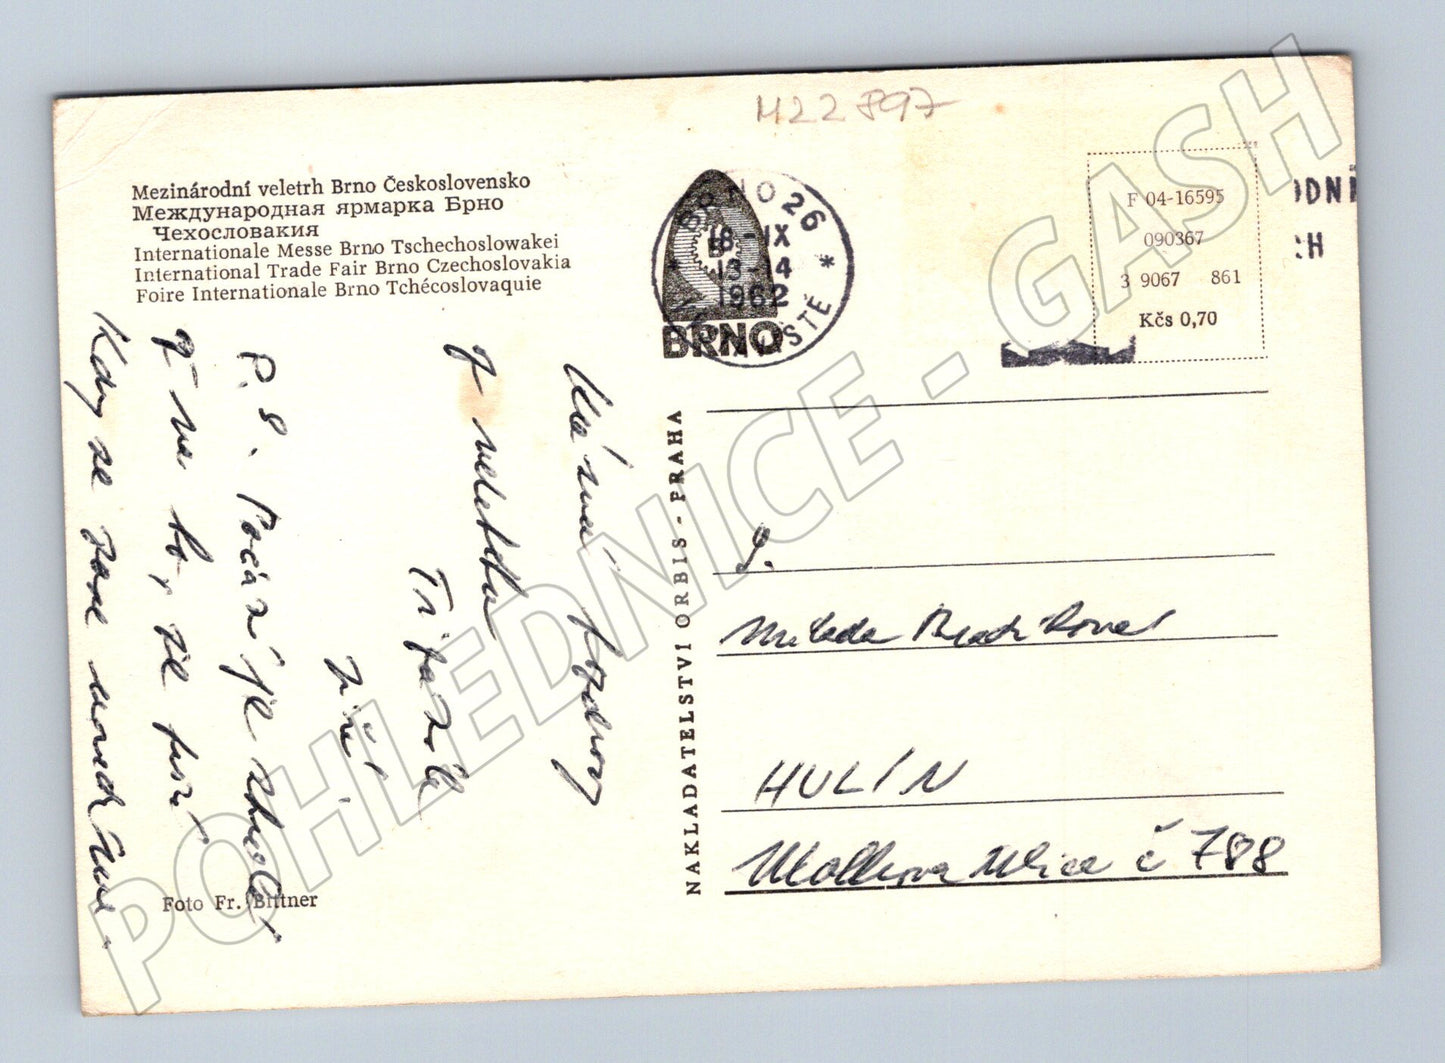 M22897
Mezinárodní veletrh Brno Československo
Международная ярмарка Брно
Чехословакия
Internationale Messe Brno Tschechoslowakei
International Trade Fair Brno Czechoslovakia
Foire Internationale Brno Tchécoslovaquie
BRNO 26
18.-IX
13-14
1962
VÝSTAVIŠTĚ
BRNO
F 04-16595
090367
3 9067 861
Kčs 0,70
ODNÍ
CH
Krásné pozdravy
z veletrhu
P.S. Počasí je
na to, že
Kdy se zase uvidíme
NAKLADATELSTVÍ ORBIS - PRAHA
Milada
HULÍN
Wolkrova ulice č 788
Foto Fr. Bittner
POHLEDNICE - GASH